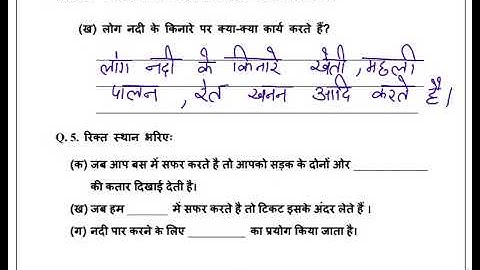 (ख) लोग नदी के किनारे पर क्या-क्या कार्य करते हैं?
लोग नदी के किनारे खेती, मछली
पालन, रेत खनन आदि करते है।
Q. 5. रिक्त स्थान भरिएः
(क) जब आप बस में सफर करते है तो आपको सड़क के दोनों ओर ____________
की कतार दिखाई देती है।
(ख) जब हम _______ में सफर करते है तो टिकट इसके अंदर लेते हैं ।
(ग) नदी पार करने के लिए _________ का प्रयोग किया जाता है।